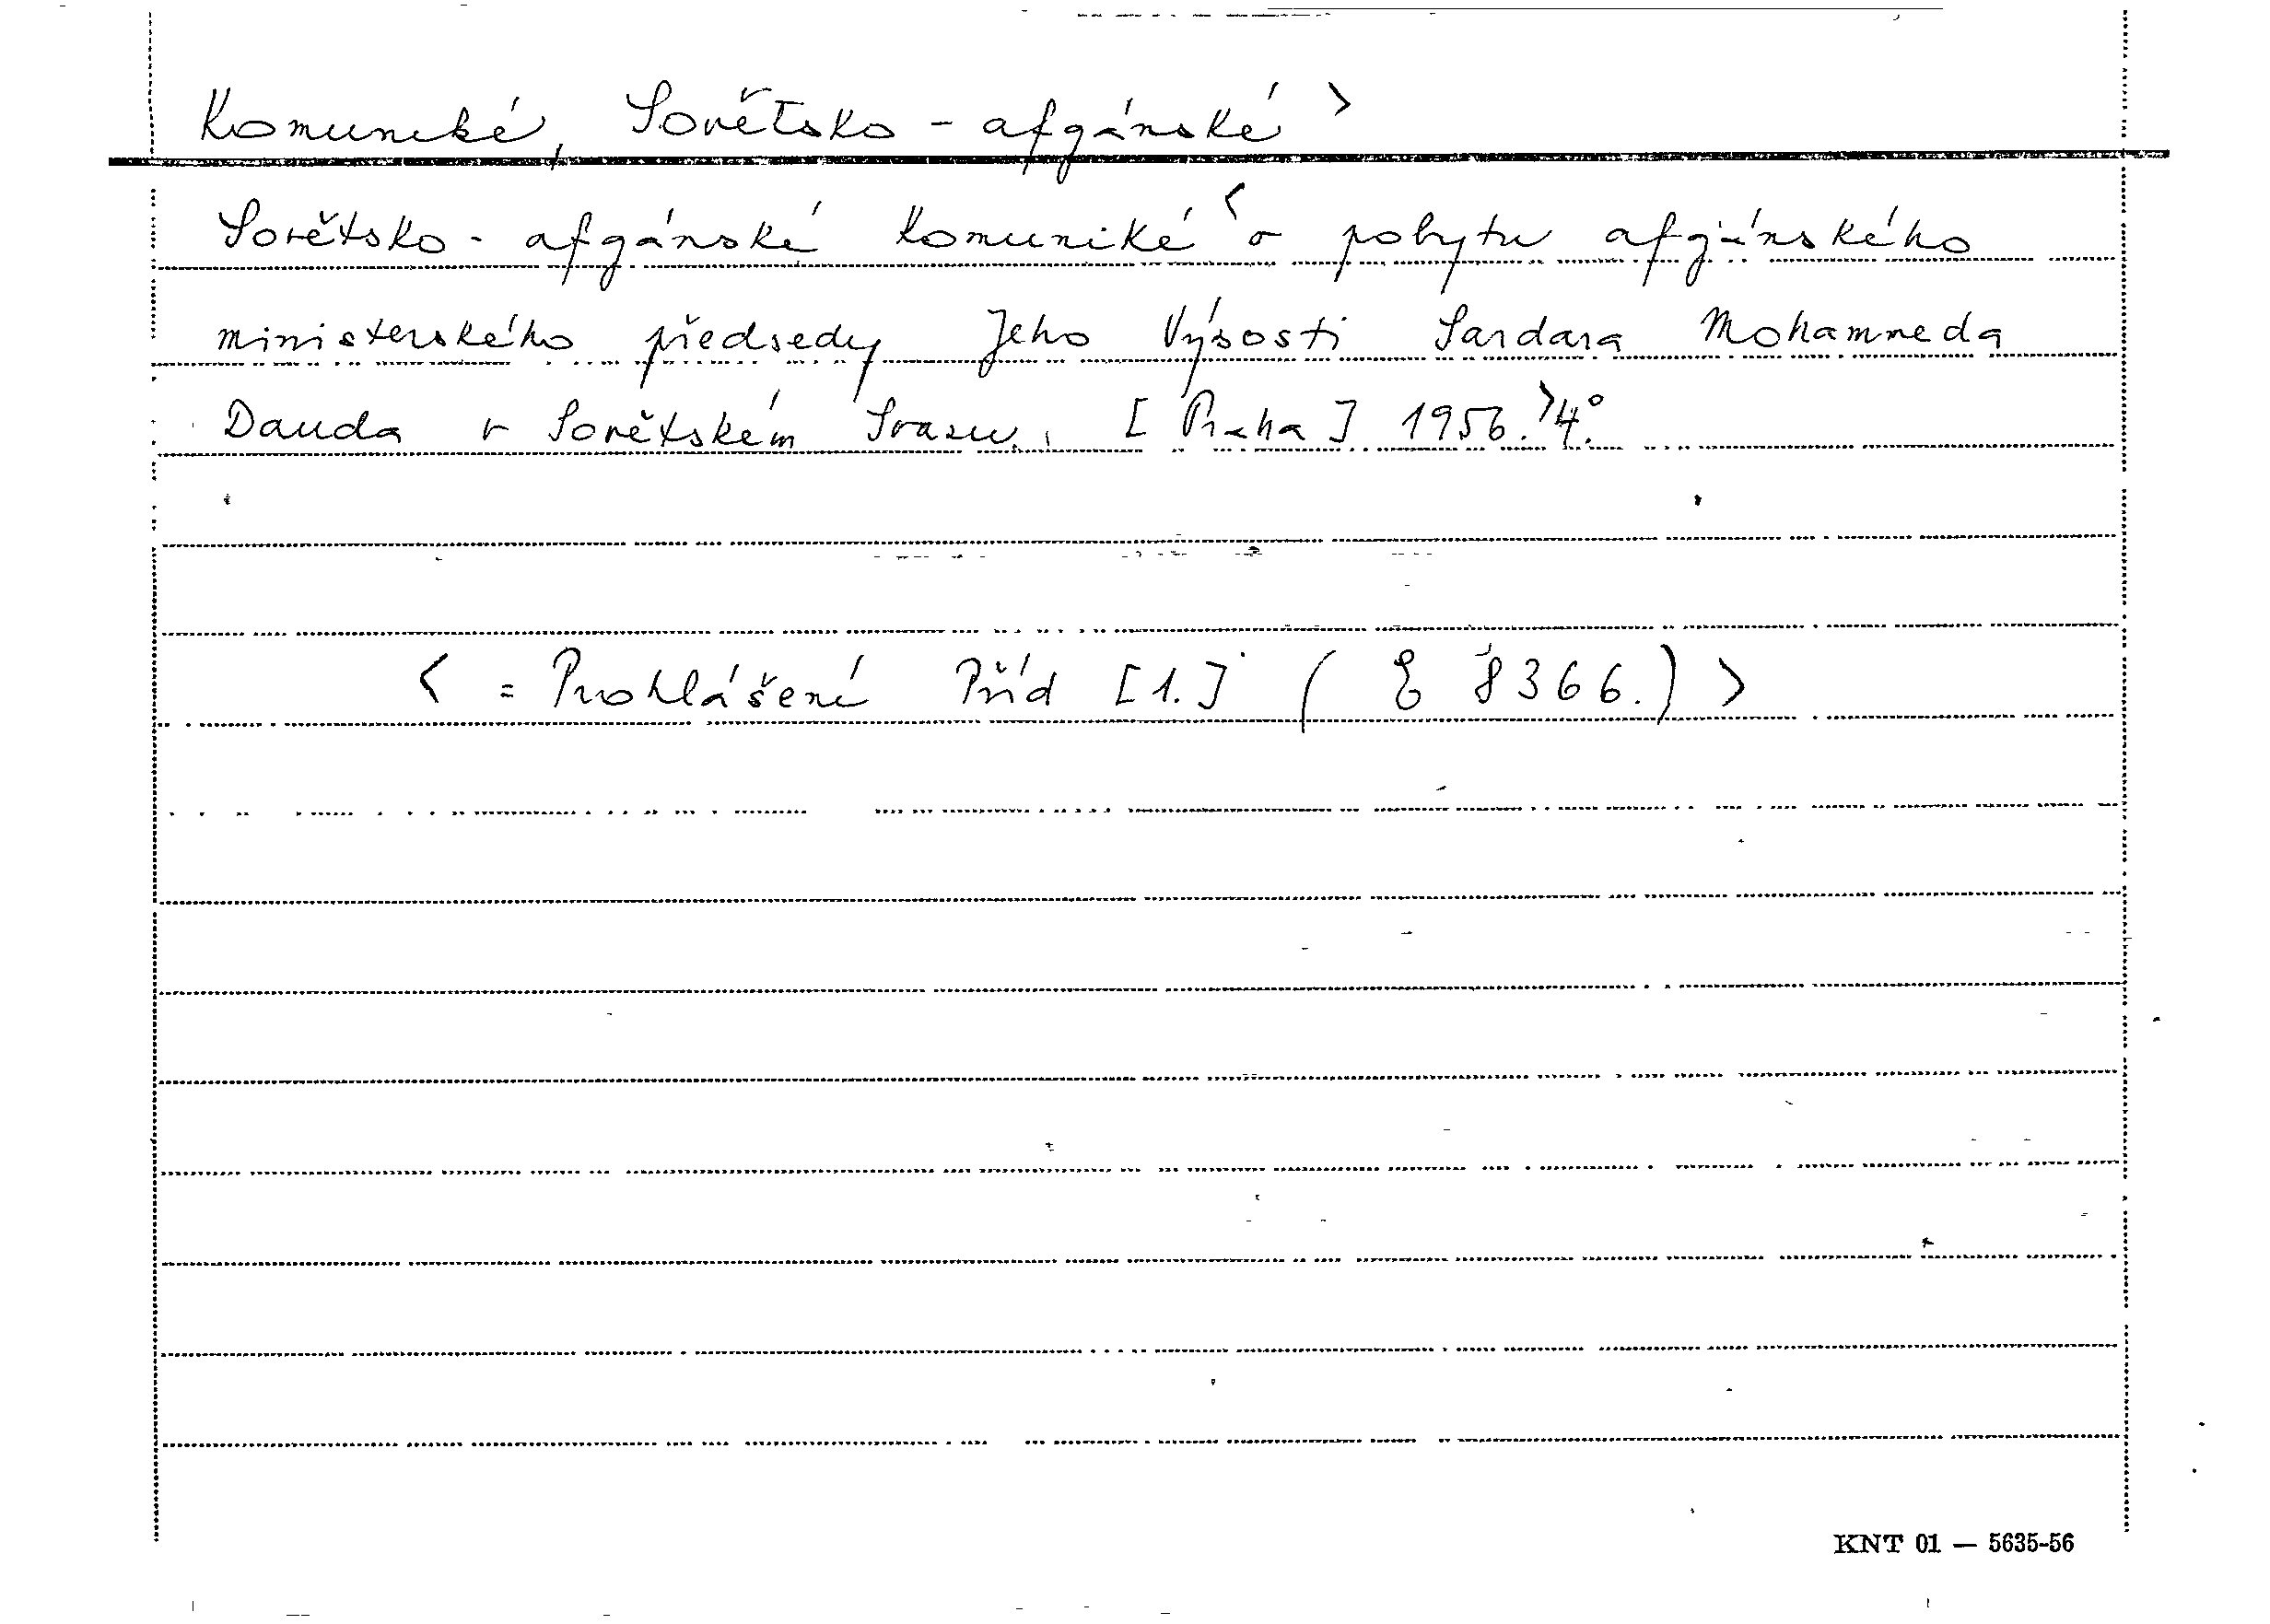 Komuniké, Sovětsko - afgánské >
Sovětsko - afgánské komuniké < o pobytu afgánského
ministerského předsedy Jeho Výsosti Sardara Mohammeda
Dauda v Sovětském Svazu. [Praha] 1956. > 4°.
< = Prohlášení Příd [1.] (E 8366.) >
KNT 01 — 5635-56